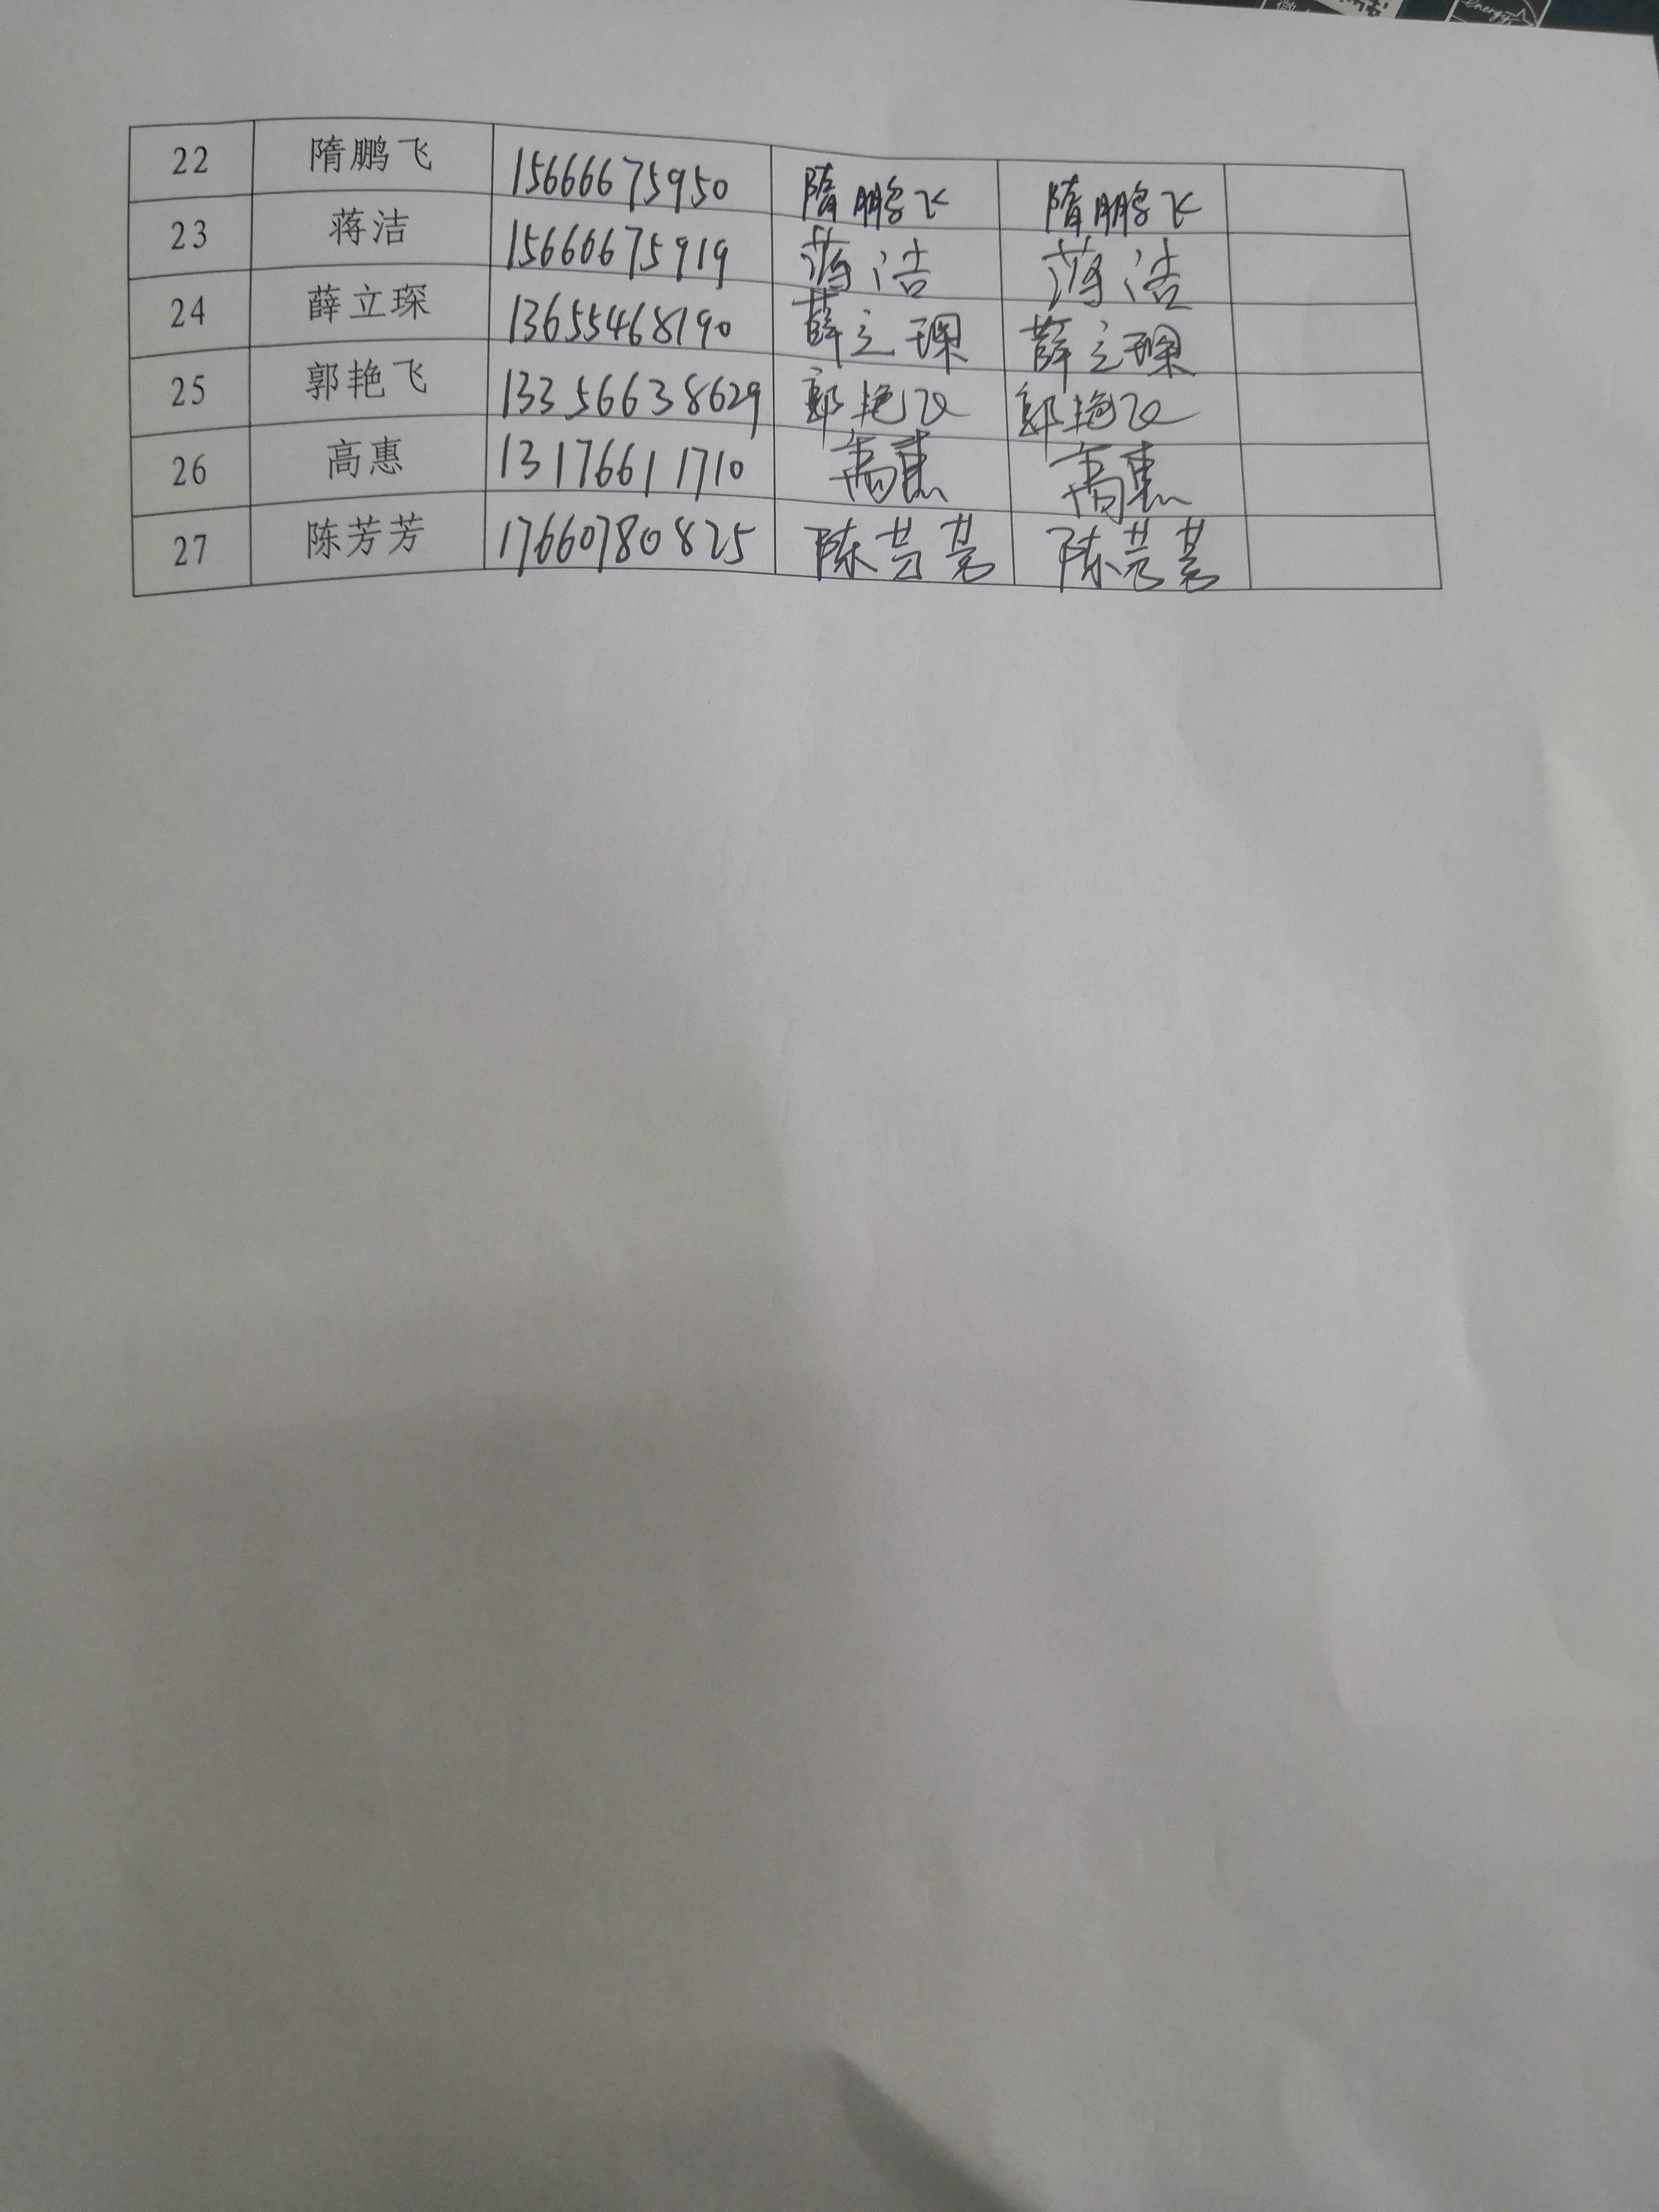 22 隋鹏飞 15666675950 隋鹏飞 隋鹏飞
23 蒋洁 15660675919 蒋洁 蒋洁
24 薛立琛 13655468190 薛立琛 薛立琛
25 郭艳飞 13356638629 郭艳飞 郭艳飞
26 高惠 13176611710 高惠 高惠
27 陈芳芳 17660780825 陈芳芳 陈芳芳